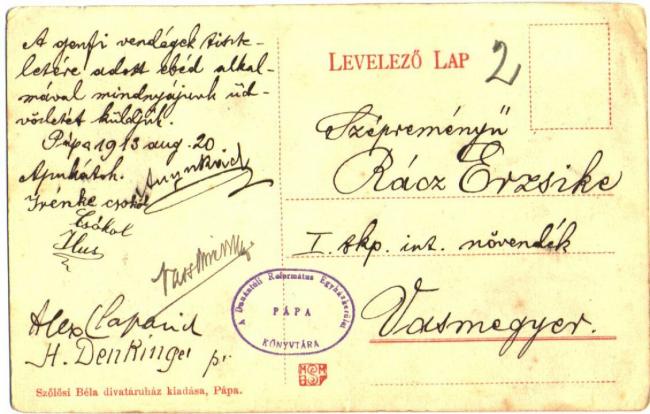 A genfi vendégek tiszte-
letére adott ebéd alkal-
mával mindnyájunk üd-
vözletét küldjük.
Pápa 1913 aug. 20
Apukátok.
Irénke csókol
Csókol
Ilus
Alex Claparid
H. Denkinger pr
Szőlősi Béla divatáruház kiadása, Pápa.
LEVELEZŐ LAP
2
Szépreményű
Rácz Erzsike
I. skp. int. növendék
Vasmegyer.
A Dunántúli Református Egyházkerület
PÁPA
KÖNYVTÁRA